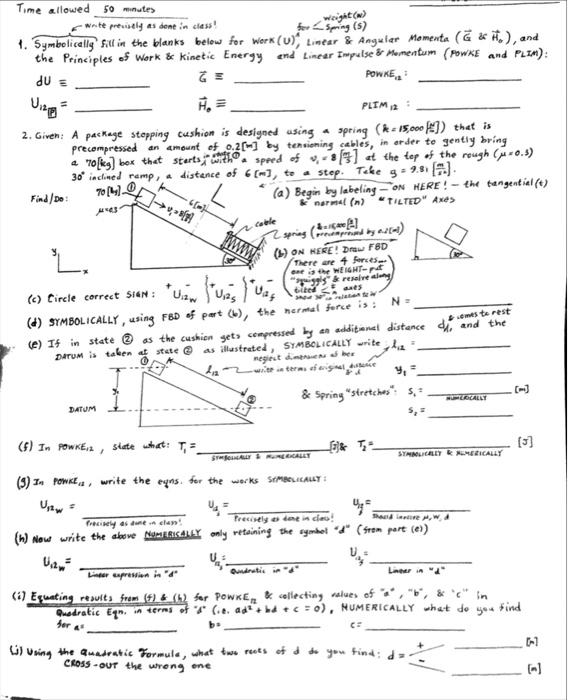 Time allowed 50 minutes
write precisely as done in class!
for < weight (W)
Spring (S)
1. Symbolically fill in the blanks below for Work (U), Linear & Angular Momenta (G⃗ & H⃗₀), and
the Principles of Work & Kinetic Energy and Linear Impulse & Momentum (POWKE and PLIM):
dU ≡ G⃗ ≡ POWKE₁₂ :
U₁₂ = H⃗₀ ≡ PLIM₁₂ :
2. Given: A package stopping cushion is designed using a spring (k = 15,000 [N/m]) that is
precompressed an amount of 0.2[m] by tensioning cables, in order to gently bring
a 70[kg] box that starts, in state ① with a speed of v₁ = 8 [m/s] at the top of the rough (μ=0.3)
30° inclined ramp, a distance of 6 [m], to a stop. Take g = 9.81 [m/s²].
Find/Do:
70 [kg] ①
μ=0.3
v₁=8[m/s]
6[m]
cable
spring (k=15,000 [N/m] precompressed by 0.2[m])
30°
y
x
(a) Begin by labeling — ON HERE! — the tangential (t)
& normal (n) "TILTED" Axes
(b) ON HERE! Draw FBD
(There are 4 forces...
one is the WEIGHT — put
"squiggly" & resolve along
tilted axes
show 30° in relation to W)
30°
(c) Circle correct SIGN: +/- U₁₂w } +/- U₁₂s } +/- U₁₂f
(d) SYMBOLICALLY, using FBD of part (b), the normal force is: N =
(e) If in state ② as the cushion gets compressed by an additional distance d, & comes to rest and the
DATUM is taken at state ② as illustrated, SYMBOLICALLY write: l₁₂ =
neglect dimensions of box
write in terms of original distance & d
①
l₁₂
②
y₁
DATUM
y₁ =
& Spring "stretches": s₁ = [m]
NUMERICALLY
s₂ =
(f) In POWKE₁₂, state what: T₁ = [J] & T₂ = [J]
SYMBOLICALLY & NUMERICALLY SYMBOLICALLY & NUMERICALLY
(g) In POWKE₁₂, write the eqns. for the works SYMBOLICALLY:
U₁₂w = U₁₂s = U₁₂f =
Precisely as done in class! Precisely as done in class! Should involve μ, W, d
(h) Now write the above NUMERICALLY only retaining the symbol "d" (from part (e))
U₁₂w = U₁₂s = U₁₂f =
Linear expression in "d" Quadratic in "d" Linear in "d"
(i) Equating results from (f) & (h) for POWKE₁₂ & collecting values of "a", "b", & "c" in
Quadratic Eqn. in terms of "d" (i.e. ad² + bd + c = 0), NUMERICALLY what do you find
for a= b= c=
(j) Using the Quadratic Formula, what two roots of d do you find: d = + [m]
CROSS-OUT the wrong one - [m]